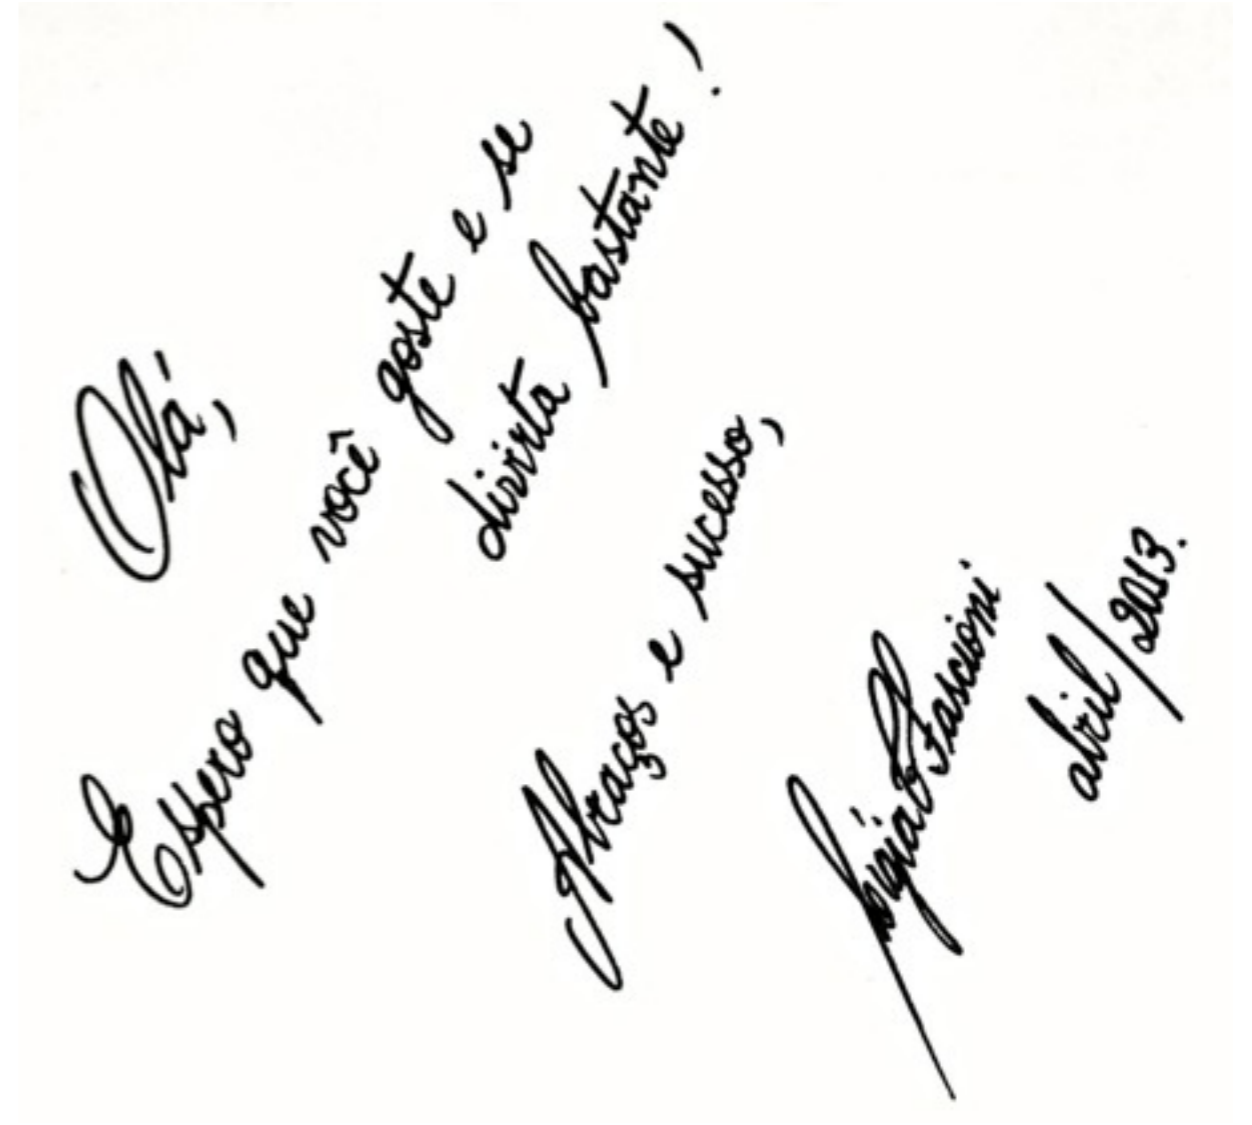 Olá,
Espero que você goste e se
divirta bastante!
Abraços e sucesso,
Lígia Fascioni
abril/2013.